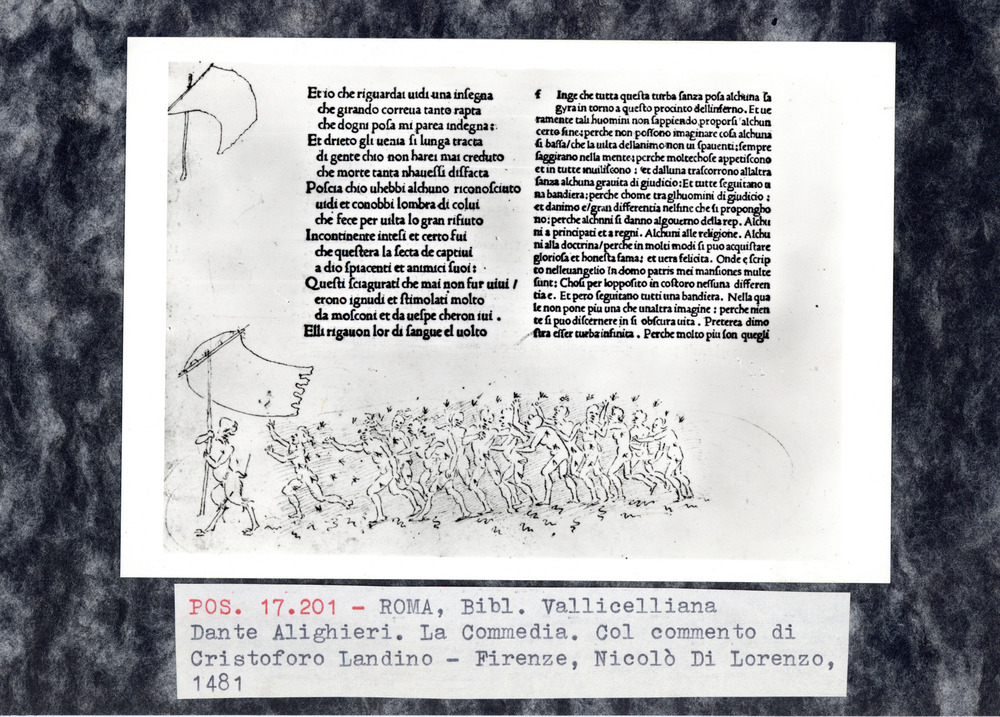 Et io che riguardai uidi una insegna
che girando correua tanto rapta
che dogni posa mi parea indegna:
Et drieto gli uenia si lunga tracta
di gente chio non harei mai creduto
che morte tanta nhauessi disfacta
Poscia chio uhebbi alchuno riconosciuto
uidi et conobbi lombra di colui
che fece per uilta lo gran rifiuto
Incontinente intesi et certo fui
che questera la secta de captiui
a dio spiacenti et a nimici suoi:
Questi sciagurati che mai non fur uiui /
erono ignudi et stimolati molto
da mosconi et da uespe cheron iui .
Elli rigauon lor di sangue el uolto
f Inge che tutta questa turba sanza posa alchuna sa
gyra in torno a questo procinto dellinferno. Et ue
ramente tali huomini non sappiendo proporsi alchun
certo fine; perche non possono imaginare cosa alchuna
si bassa/che la uilta dellanimo non ui spauenti; sempre
saggirano nella mente; perche moltechose appetiscono
et in tutte inuiliscono : et dalluna trascorrono allaltra
sanza alchuna grauita di giudicio: Et tutte seguitano u
na bandiera; perche chome tra glhuomini di giudicio :
et danimo e/gran differentia nelfine che si propongho
no; perche alchuni si danno algouerno della rep. Alchu
ni a principati et a regni. Alchuni alle religione. Alchu
ni alla doctrina/perche in molti modi si puo acquistare
gloriosa et honesta fama: et uera felicita. Onde e scrip
to nelleuangelio In domo patris mei mansiones multe
sunt: Chosi per lopposito in costoro nessuna differen
tia e. Et pero seguitano tutti una bandiera. Nella qua
le non pone piu una che unaltra imagine : perche nien
te si puo discernere in si obscura uita . Preterea dimo
stra esser turba infinita . Perche molto piu son quegli
POS. 17.201 - ROMA, Bibl. Vallicelliana
Dante Alighieri. La Commedia. Col commento di
Cristoforo Landino - Firenze, Nicolò Di Lorenzo,
1481